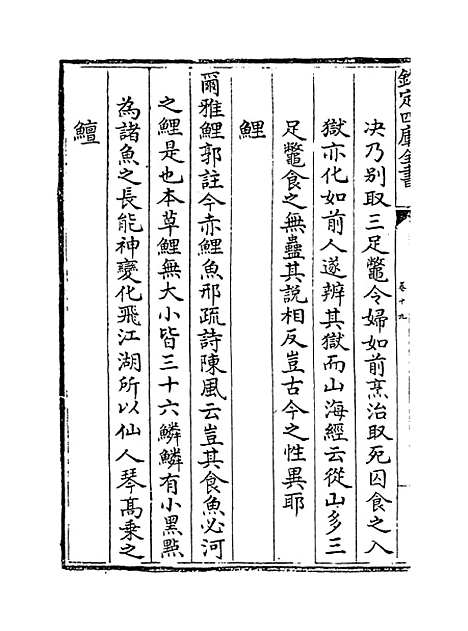 欽定四庫全書
卷十九
決乃别取三足鼈令婦如前烹治取死囚食之入
獄亦化如前人遂辨其獄而山海經云從山多三
足鼈食之無蠱其說相反豈古今之性異耶
鯉
爾雅鯉郭註今赤鯉魚邢疏詩陳風云豈其食魚必河
之鯉是也本草鯉無大小皆三十六鱗鱗有小黑點
為諸魚之長能神變化飛江湖所以仙人琴髙乗之
鱣